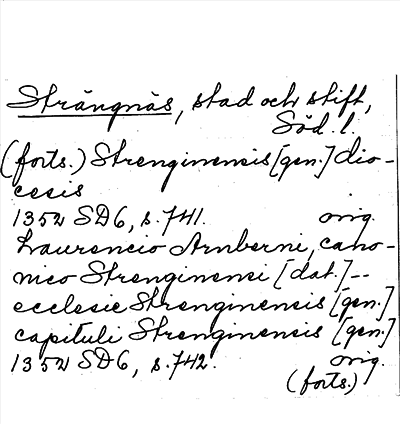 Strängnäs, stad och stift,
Söd. l.
(forts.) Strenginensis [gen.] dio-
cesis
1352 SD6, s. 741. orig.
Laurencio Arnberni, cano-
nico Strenginensi [dat.] --
ecclesie Strenginensis [gen.]
capituli Strenginensis [gen.]
1352 SD6, s. 742. orig.
(forts.)